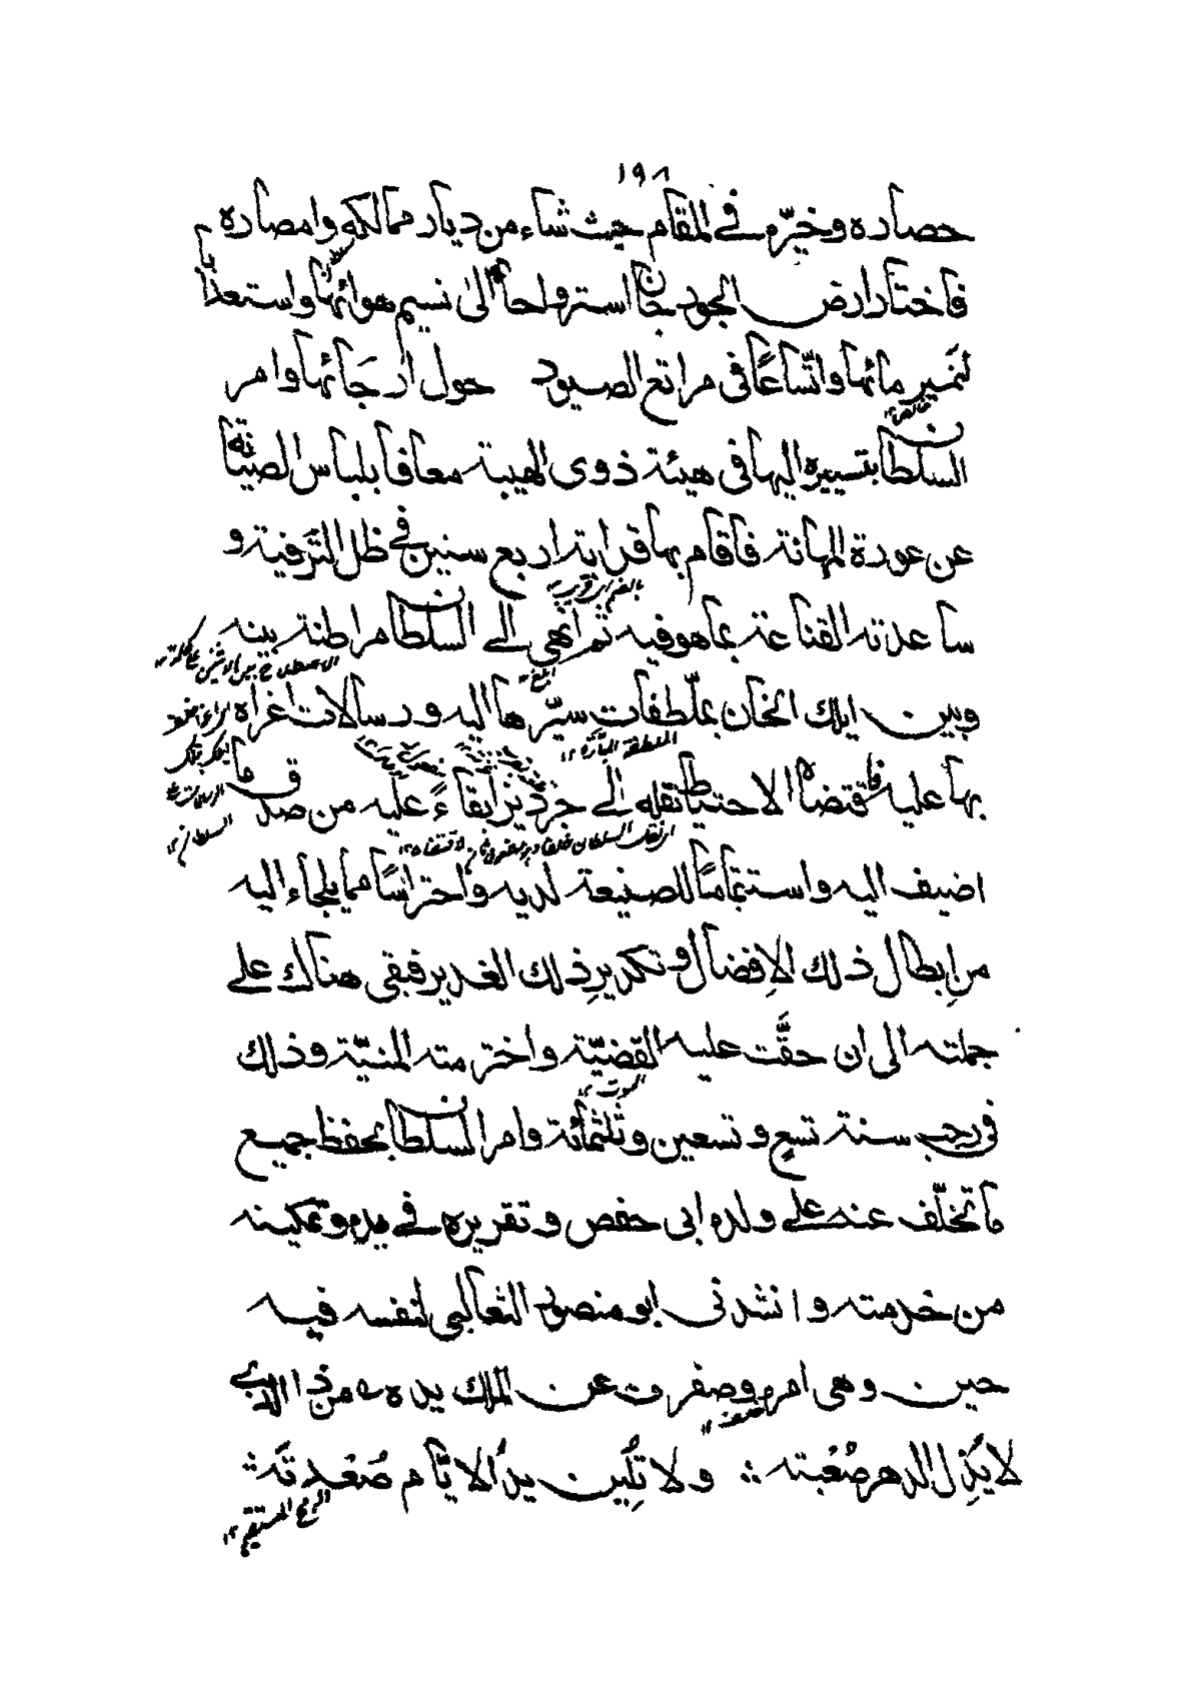 ١٩٨
حصاره وخيّره في المقام حيث شاء من ديار ممالكه وامصاره
فاختار ارض الجوزجان استرواحا الى نسيم هوائها واستعذابا
لنمير مائها واتّساعًا في مراتع الصيود حول ارجَائها وامر
خالص ١٢
السلطان بتسييره اليها في هيئة ذوى الهيبة معافا بلباس الصيانة
عن عورة المهانة فاقام بها قرابة اربع سنين في ظل الترفية و
بالضم اى قريب ١٢
ساعدته القناعة بما هو فيه ثم انهى الى السلطان مراطنة بينه
ابلغ ١٢
وبين ايلك الخان بملّطفات سيّرها اليه ورسالات اغراه
بها عليه فاقتضاه الاحتياط نقله الى جَرديز ابقاءً عليه من صدق ما
اضيف اليه واستتمامًا للصنيعة لديه واحتراسًا مما يلجاء اليه
من ابطال ذلك الإفضال وتكدير ذلك الغدير فبقى هناك على
جملته الى ان حقَّت عليه القضيّة واخترمته المنيّة وذلك
الموت ١٢
في رجب سنة تسع وتسعين وثلثمائة وامر السلطان بحفظ جميع
ما تخلّف عنه على ولده ابى حفص وتقريره في يده وتمكينه
من خدمته وانشدنى ابو منصور الثعالبى لنفسه فيه
حين وهى امره وصفرت عن الملك يده من ذا الذى
لا يُذِل الدهر صُعْبته ∴ ولا تُلِين يدُ الايّام صُعْدتَه ∴
الرمح المستقيم ١٢